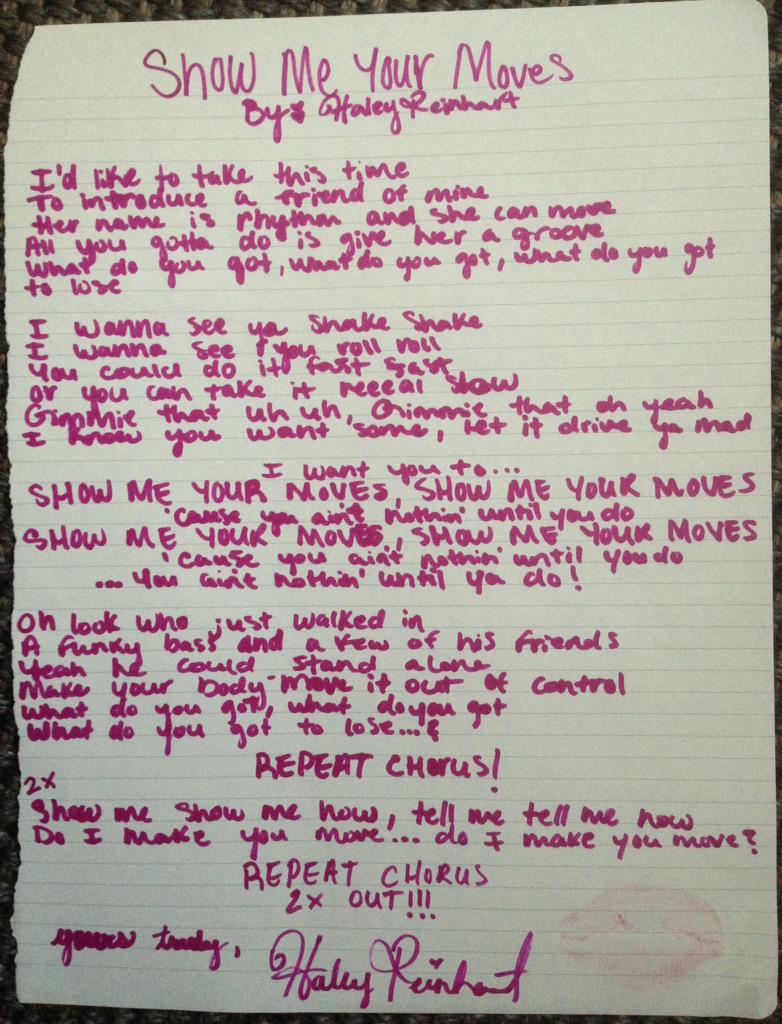 Show Me Your Moves
By: Haley Reinhart
I'd like to take this time
To introduce a friend of mine
Her name is rhythm and she can move
All you gotta do is give her a groove
What do you got, what do you got, what do you got
to lose
I wanna see ya shake shake
I wanna see you roll roll
You could do it fast fast
or you can take it reeeal slow
Gimmie that uh uh, Gimmie that oh yeah
I know you want some, let it drive ya mad
I want you to...
SHOW ME YOUR MOVES, SHOW ME YOUR MOVES
'cause you ain't nothin' until you do
SHOW ME YOUR MOVES, SHOW ME YOUR MOVES
'cause you ain't nothin' until you do
... You ain't nothin' until ya do!
Oh look who just walked in
A funky bass and a few of his friends
Yeah he could stand alone
Make your body move it out of control
What do you got, what do you got
What do you got to lose...
REPEAT CHORUS!
2x
Show me show me how, tell me tell me now
Do I make you move... do I make you move?
REPEAT CHORUS
2x OUT!!!
yours truly,
Haley Reinhart